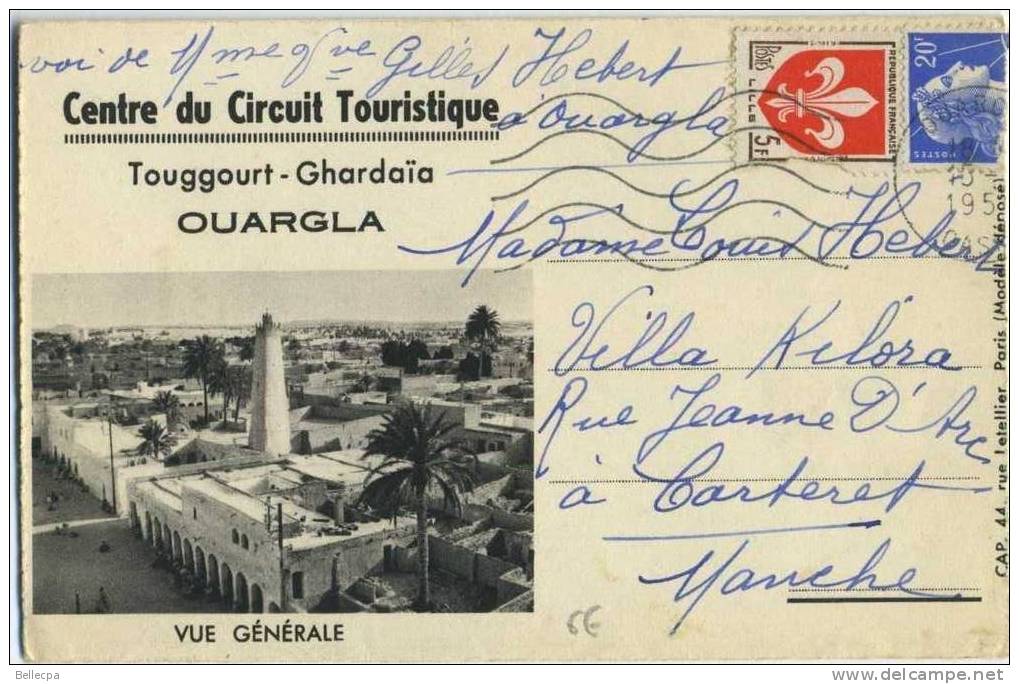 Envoi de Mme Gve Gilles Hebert
à Ouargla
Centre du Circuit Touristique
Touggourt - Ghardaïa
OUARGLA
POSTES
LILLE
5F
RÉPUBLIQUE FRANÇAISE
20F
POSTES
OUARGLA
195
OASIS
Madame Louis Hebert
Villa Kilora
Rue Jeanne D'Arc
à Carteret
Manche
VUE GÉNÉRALE
6€
CAP, 44, rue Letellier, Paris (Modèle déposé)
Bellecpa
www.delcampe.net